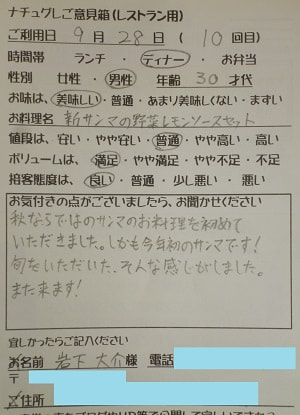 ナチュグしご意見箱(レストラン用)
ご利用日 9月 28日 ( 10 回目)
時間帯 ランチ ・ ディナー ・ お弁当
性別 女性 ・ 男性 年齢 30 才代
お味は、美味しい・普通・あまり美味しくない・まずい
お料理名 新サンマの野菜レモンソースセット
値段は・安い・やや安い・普通・やや高い・高い
ボリュームは、満足・やや満足・やや不足・不足
接客態度は、良い・普通・少し悪い・悪い
お気付きの点がございましたら、お聞かせください
秋ならではのサンマのお料理を初めて
いただきました。しかも今年初のサンマです!
旬をいただいた、そんな感じがしました。
また来ます!
宜しかったらご記入ください
お名前 岩下 大介様 電話
〒
ご住所